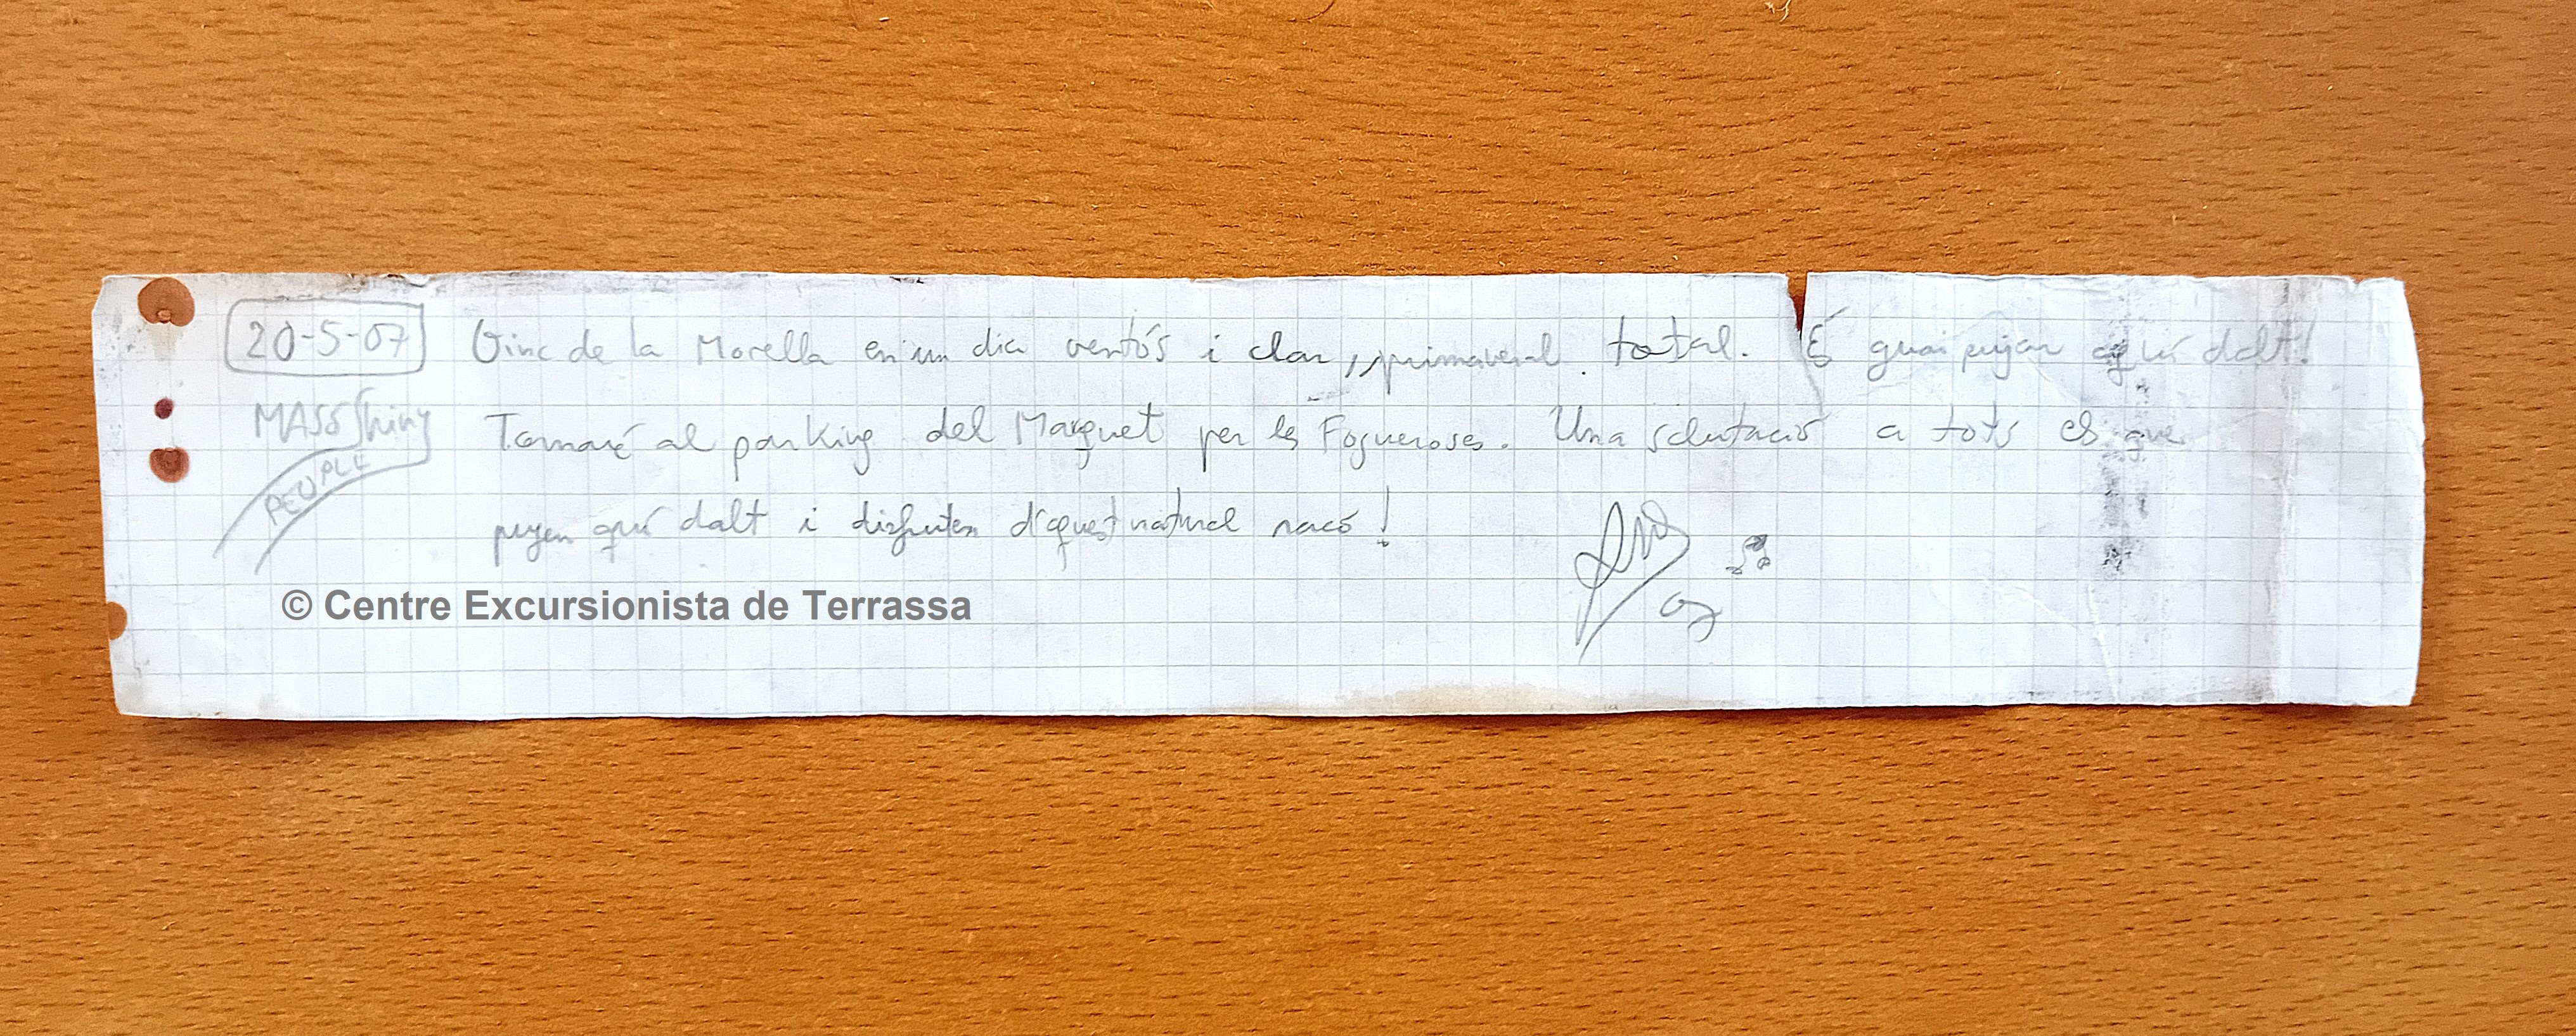 20-5-07 Vinc de la Morella en un dia ventós i clar, primaveral total. És guai pujar aquí dalt!
MASS Shiny Tornaré al parking del Marquet per les Fogueroses. Una salutació a tots els que
PEOPLE
pugen aquí dalt i disfruten d'aquest natural racó!
© Centre Excursionista de Terrassa